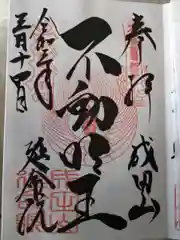 奉拝
成田山
不動明王
令和三年
月十日
延命院